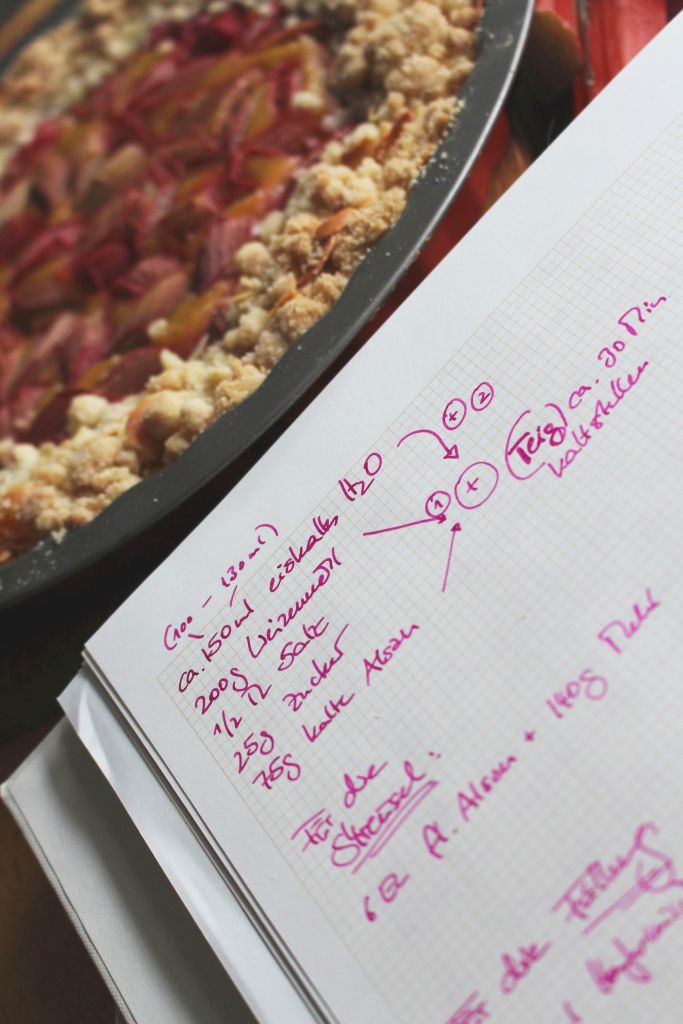 (100 - 130ml)
ca. 150ml eiskaltes H2O
200g Weizenmehl
1/2 TL Salz
25g Zucker
75g kalte Alsan
+ 2
1 + (Teig) ca. 30 Min
kaltstellen
Für die
Streusel:
6 EL fl. Alsan + 140g Mehl
Für die Füllung